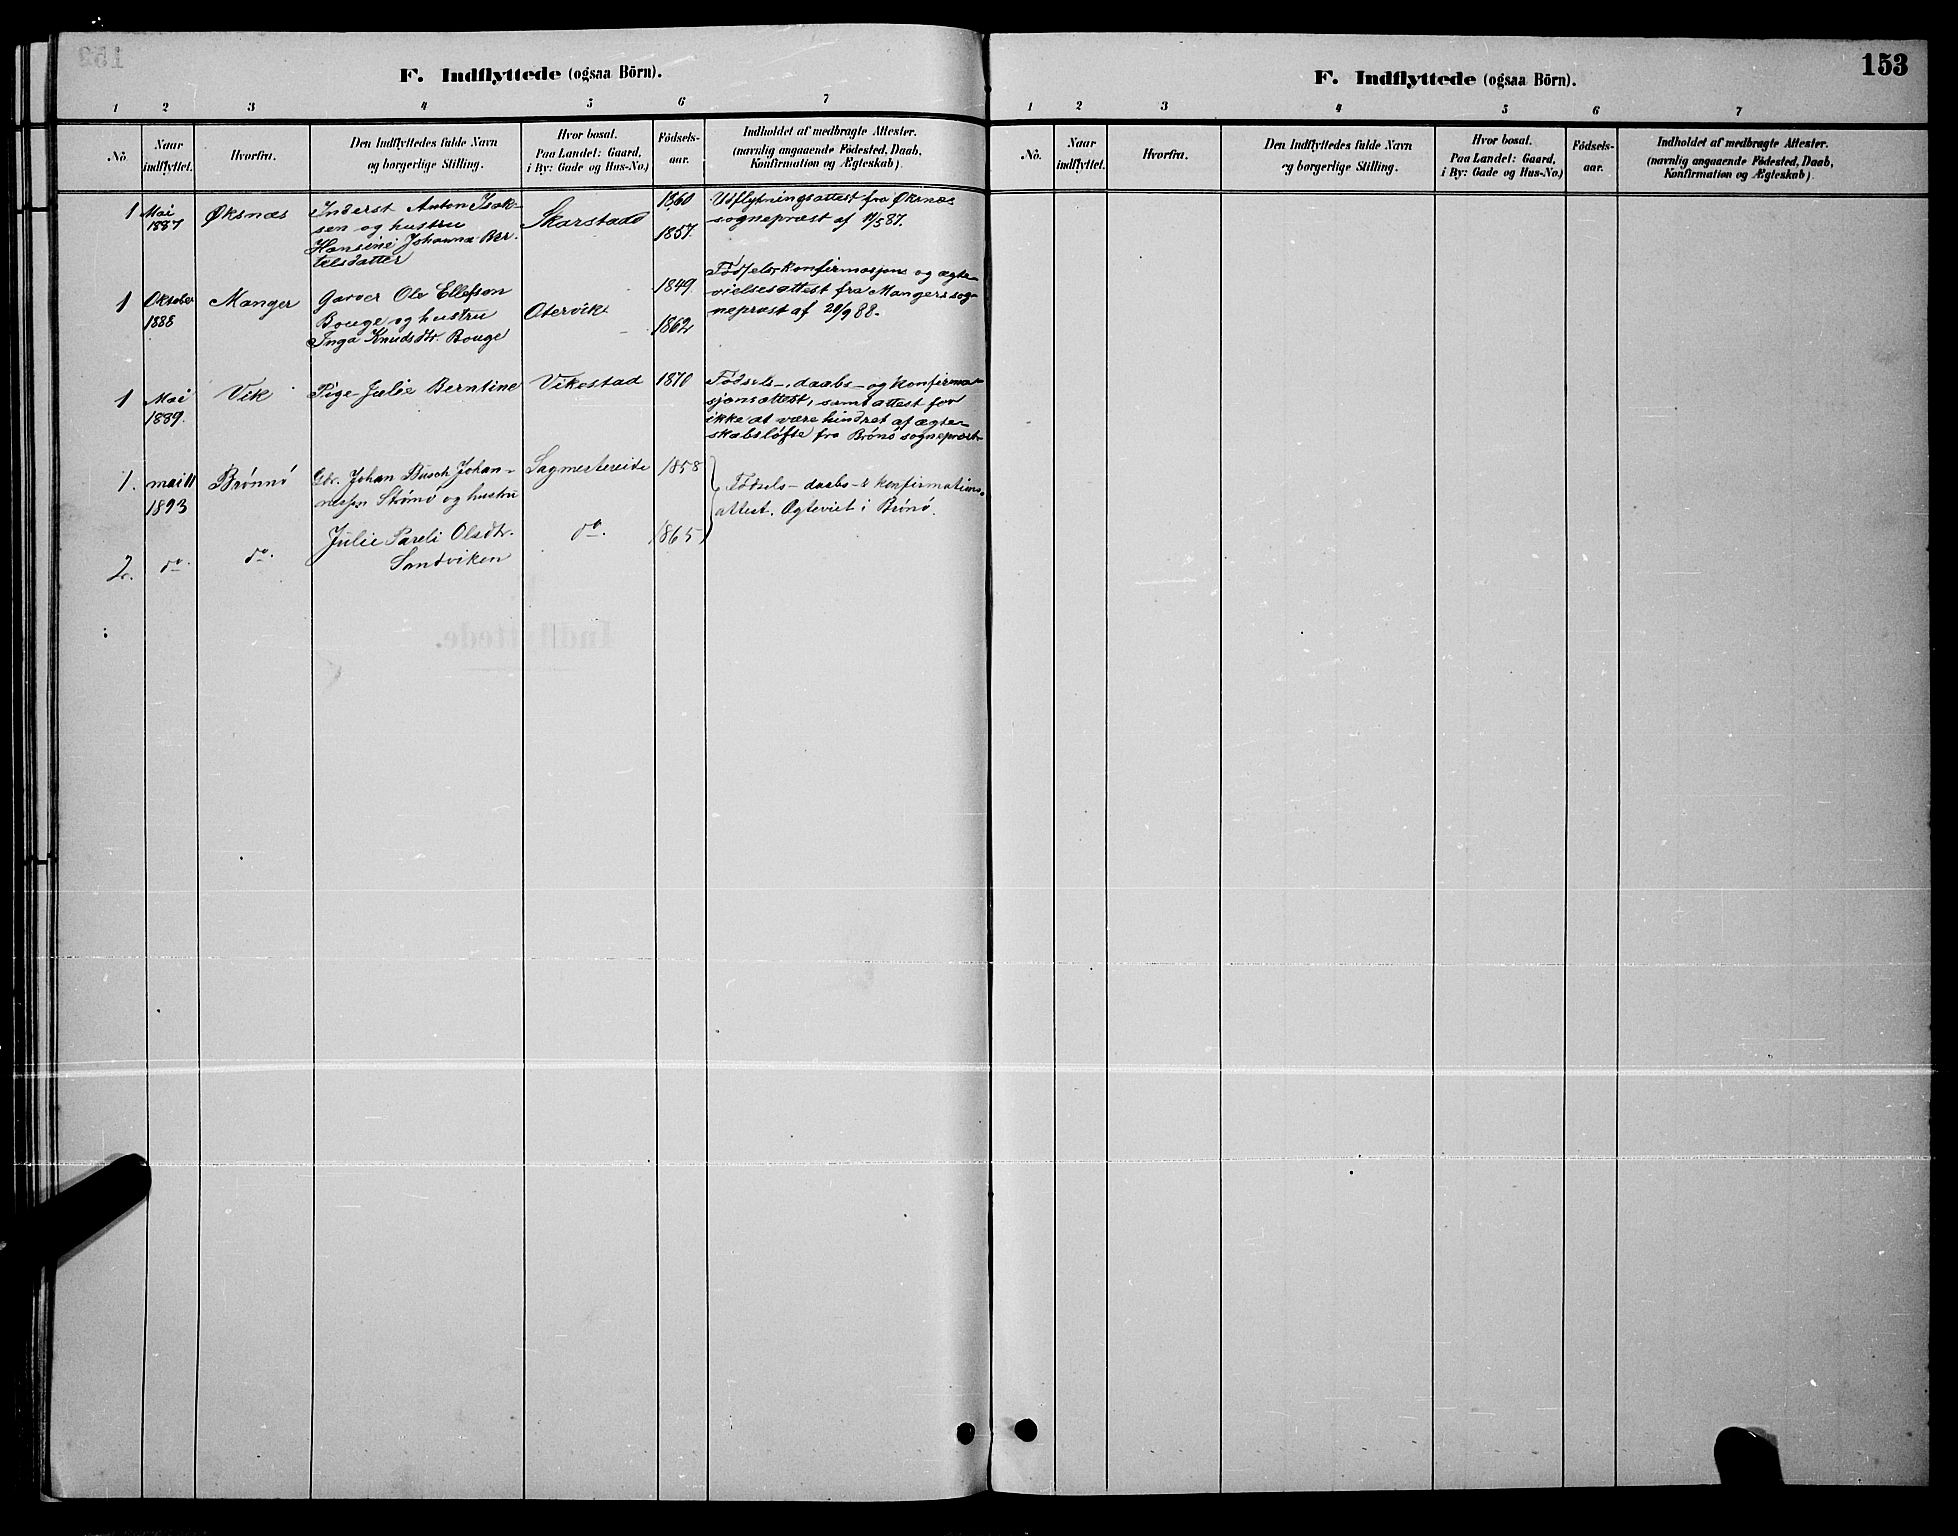 F. Indflyttede (ogsaa Börn).
1 2 3 4 5 6 7
No. Naar indflyttet. Hvorfra. Den Indflyttedes fulde Navn og borgerlige Stilling. Hvor bosat. Paa Landet: Gaard, i By: Gade og Hus-No.) Födsels-aar. Indholdet af medbragte Attester. (navnlig angaaende Födested, Daab, Konfirmation og Ægteskab).
1 Mai 1887 Øksnæs Inderst Anton Isak-
sen og hustru
Hansine Johanna Ber-
telsdatter
Skarstad 1860
1857.
Udflytningsattest fra Øksnæs
sognepræst af 11/5 87.
1 Oktober 1888 Manger Garver Ole Ellefson
Bouge og hustru
Inga Knudsdtr. Bouge
Otervik 1849
1862
Fødsels, konfirmasjons og ægte-
vielsesattest fra Mangers sog-
nepræst af 20/9 88.
1 Mai 1889. Vik Pige Julie Berntine Vikestad 1870
Fødsels-, daabs- og konfirma-
sjonsattest, samt attest for
ikke at være hindret af ægte-
skabsløfte fra Brønø sognepræst
1. mai 11 1893 Brønnø Gbr. Johan Busch Johan-
nessen Strømø og hustru
Sagmestereide 1858
Fødsels- daabs- & konfirmations-
attest. Ægteviet i Brønø.
2. do. do. Julie Pareli Olsdtr.
Sandviken
do. 1865
153
F. Indflyttede (ogsaa Börn).
1 2 3 4 5 6 7
No. Naar indflyttet. Hvorfra. Den Indflyttedes fulde Navn og borgerlige Stilling. Hvor bosat. Paa Landet: Gaard, i By: Gade og Hus-No.) Födsels-aar. Indholdet af medbragte Attester. (navnlig angaaende Födested, Daab, Konfirmation og Ægteskab).